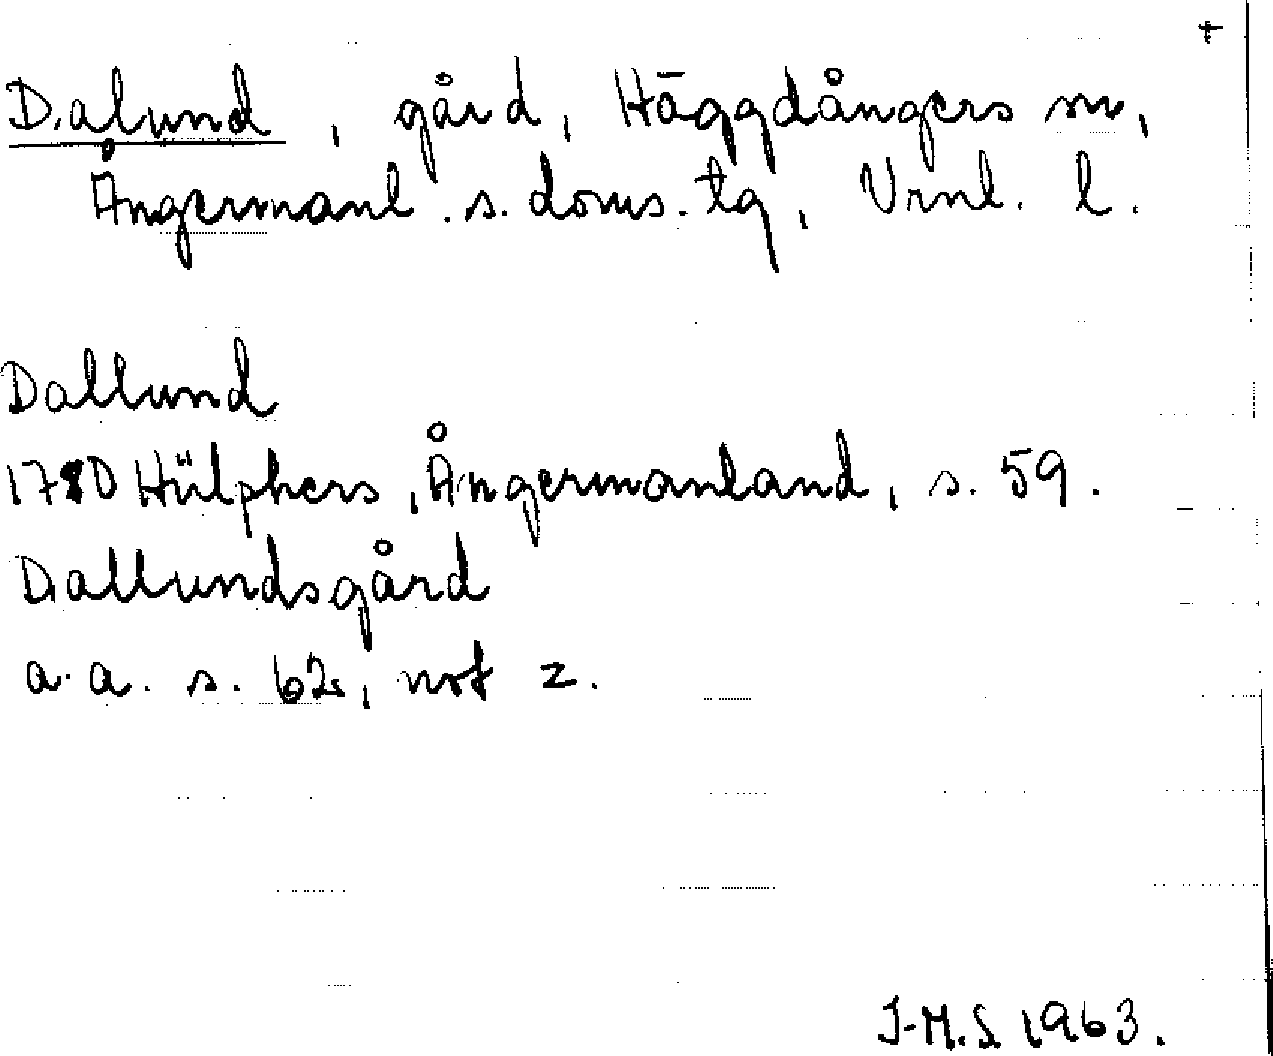 +
Dalund, gård, Häggdångers sn,
Ångermanl. s. doms. tg, Vrnl. l.
Dallund
1780 Hülphers, Ångermanland, s. 59.
Dallundsgård
a. a. s. 62, not z.
J-M.S. 1963.